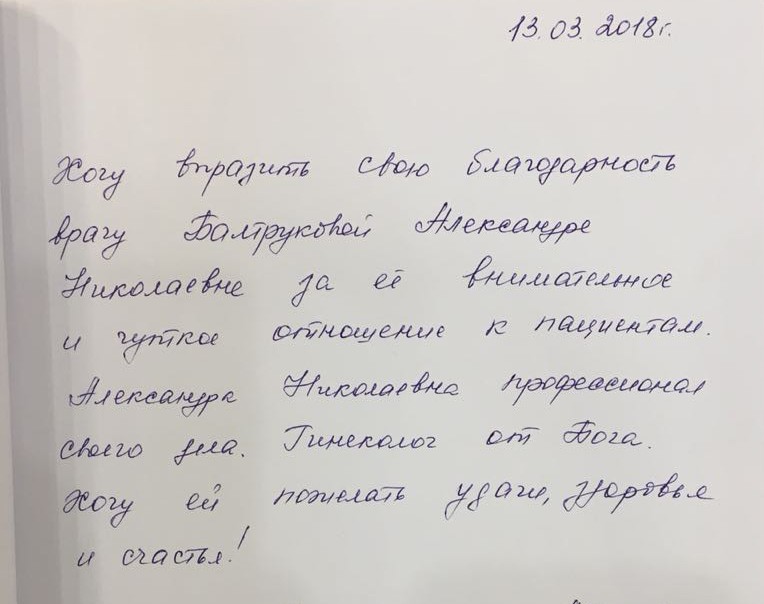 13.03.2018г.
Хочу впразить свою благодарность
врачу Балтруковой Александре
Николаевне за её внимательное
и чуткое отношение к пациентам.
Александра Николаевна профессионал
своего дела. Гинеколог от Бога.
Хочу ей пожелать удачи, здоровья
и счастья!